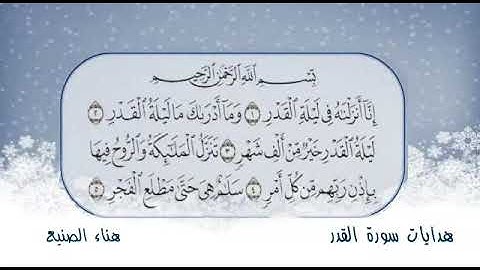 بِسْمِ اللَّهِ الرَّحْمَٰنِ الرَّحِيمِ
إِنَّا أَنزَلْنَٰهُ فِى لَيْلَةِ ٱلْقَدْرِ ١ وَمَآ أَدْرَىٰكَ مَا لَيْلَةُ ٱلْقَدْرِ ٢
لَيْلَةُ ٱلْقَدْرِ خَيْرٌ مِّنْ أَلْفِ شَهْرٍ ٣ تَنَزَّلُ ٱلْمَلَٰٓئِكَةُ وَٱلرُّوحُ فِيهَا
بِإِذْنِ رَبِّهِم مِّن كُلِّ أَمْرٍ ٤ سَلَٰمٌ هِىَ حَتَّىٰ مَطْلَعِ ٱلْفَجْرِ ٥
هدايات سورة القدر
هناء الصنيع